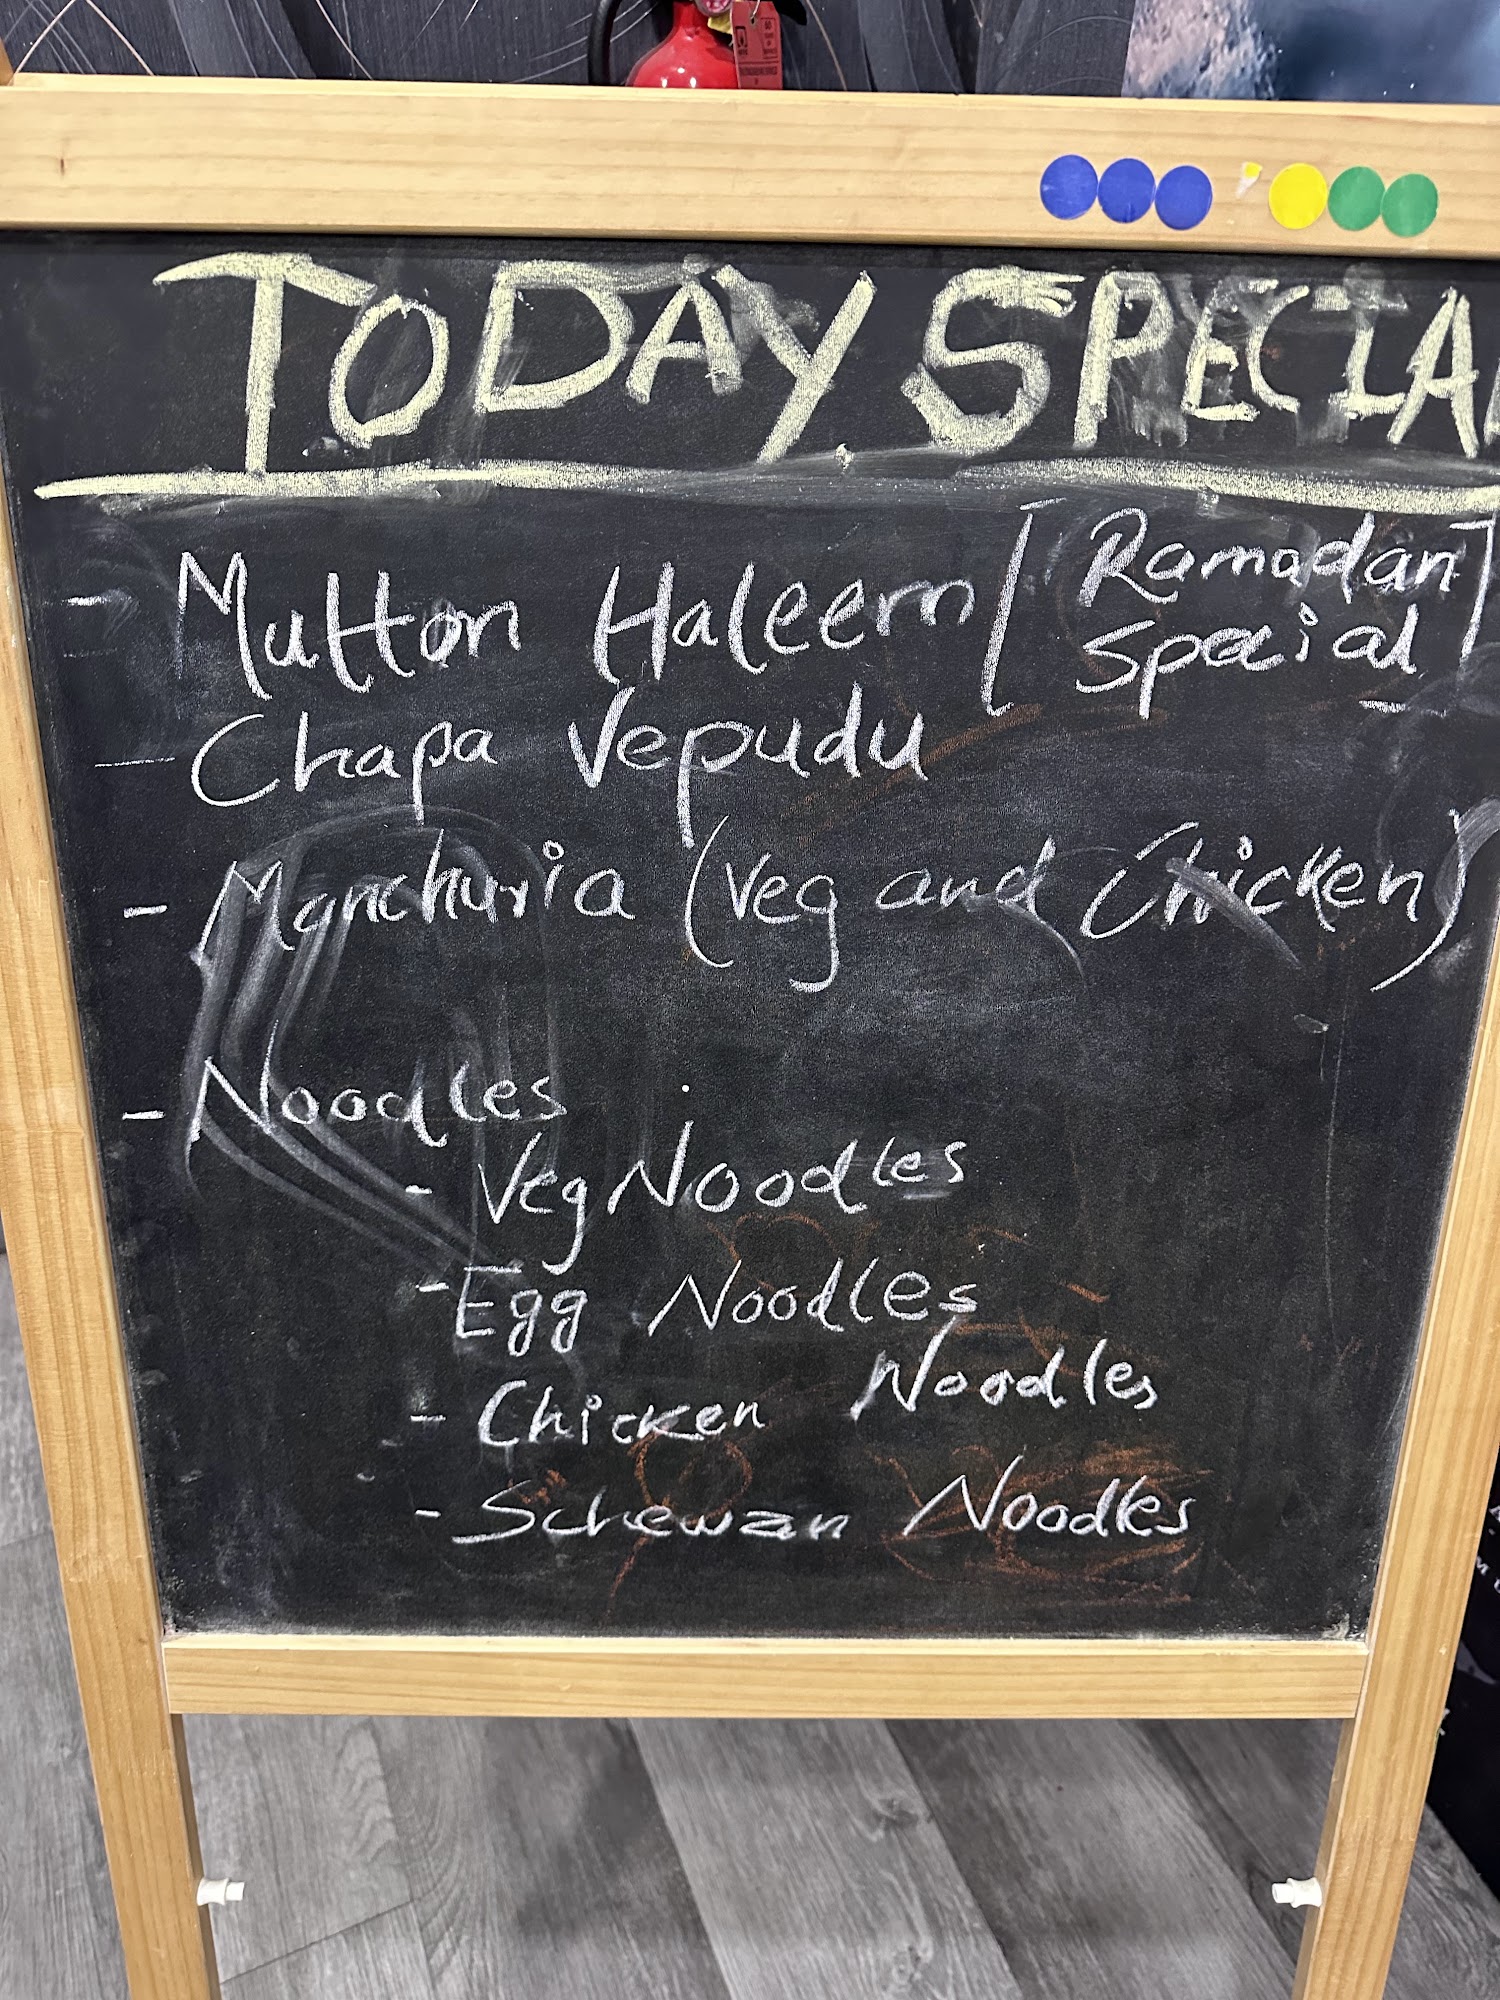 TODAY SPECIA
- Mutton Haleem [Ramadan Special]
- Chapa Vepudu
- Manchuria (Veg and Chicken)
- Noodles
- Veg Noodles
- Egg Noodles
- Chicken Noodles
- Schewan Noodles